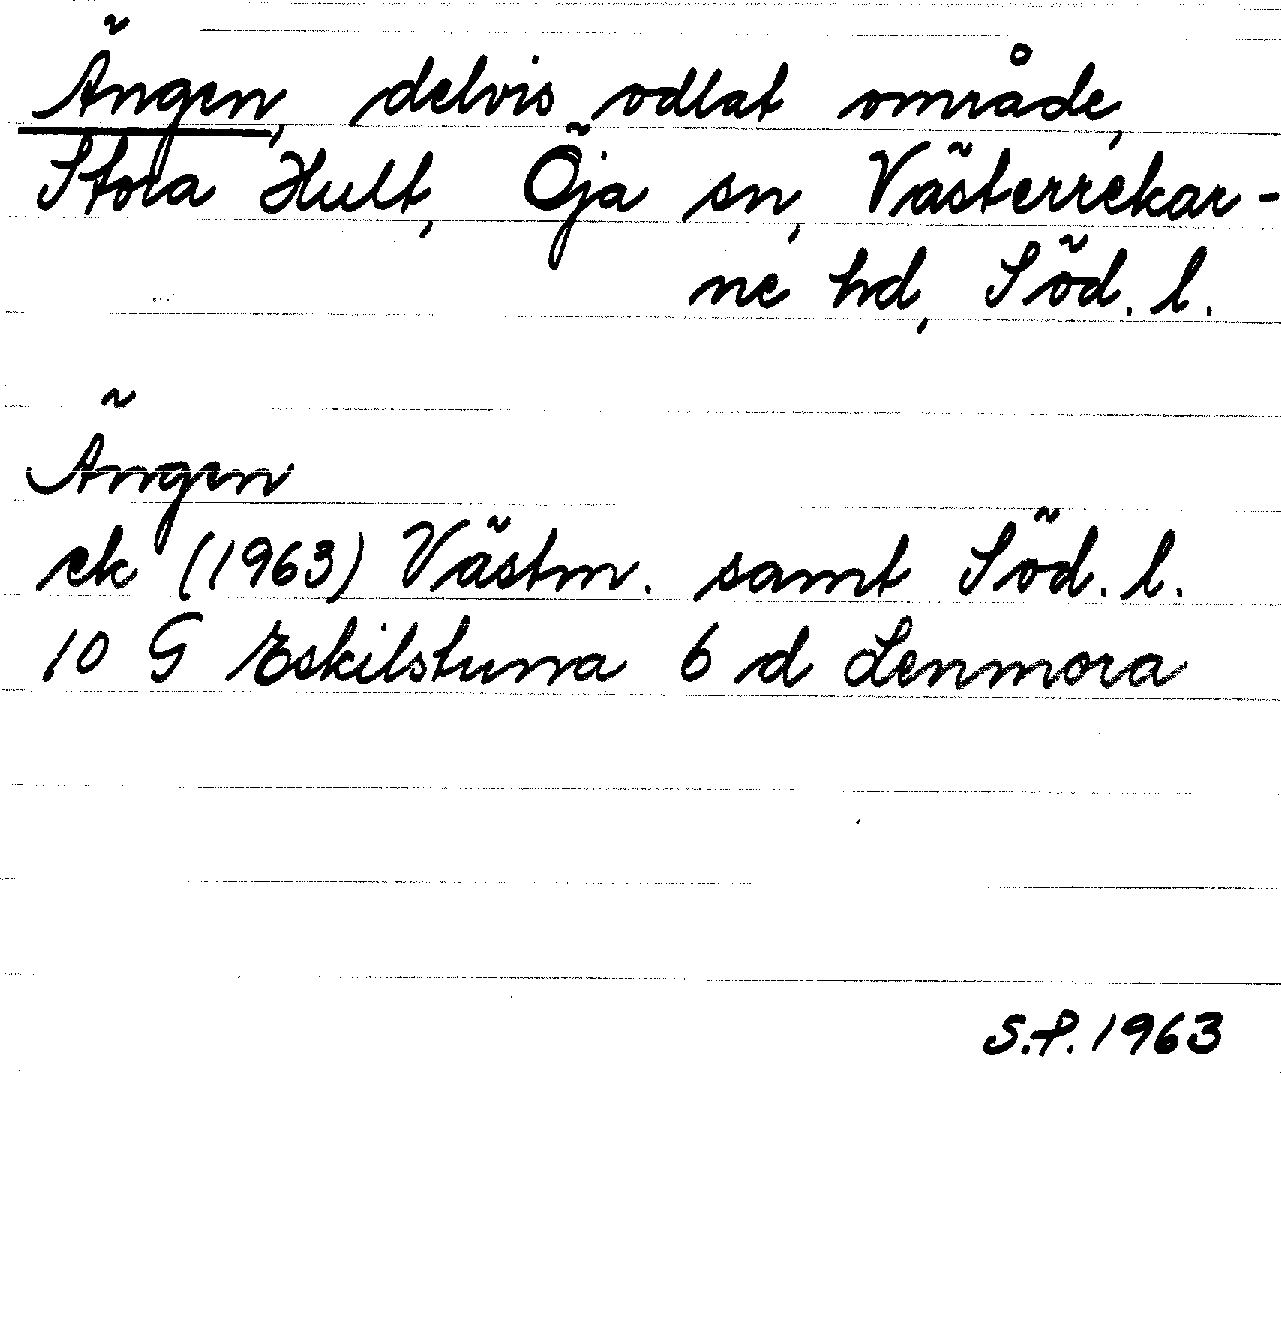 Ängen, delvis odlat område,
Stora Hult, Öja sn, Västerrekar-
ne hd, Söd. l.
Ängen
ek (1963) Västm. samt Söd. l.
10 G Eskilstuna 6 d Lenmora
S.P. 1963